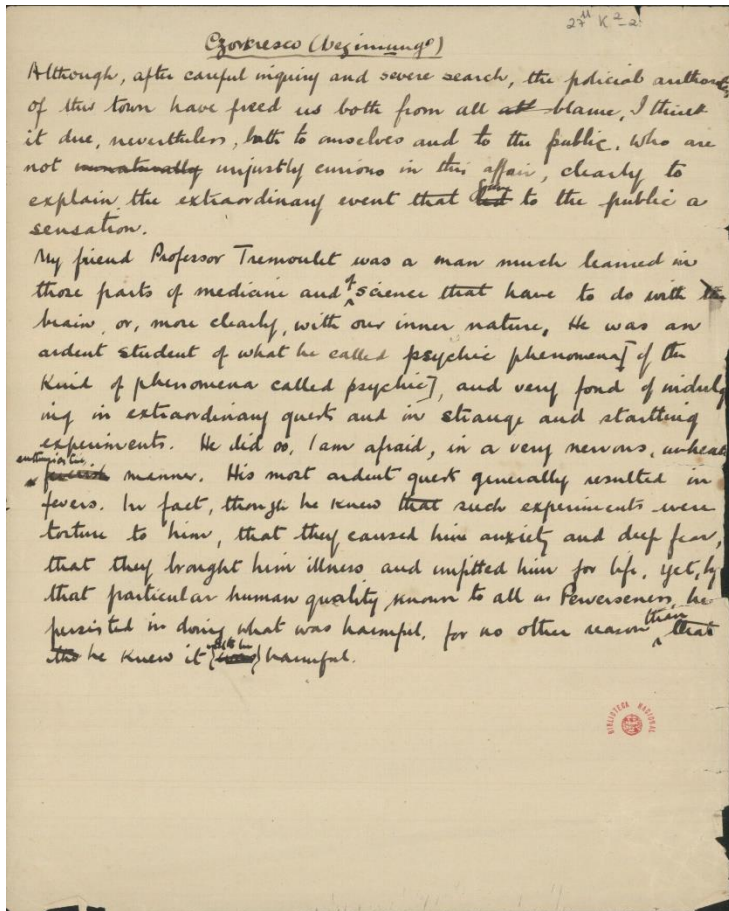 27¹¹ K²-2
Czovresco (beginnings)
Although, after careful inquiry and severe search, the policial authorities
of this town have freed us both from all all blame, I think
it due, nevertheless, both to ourselves and to the public, who are
not unnaturally unjustly curious in this affair, clearly to
explain the extraordinary event that to the public a
sensation.
My friend Professor Tremoulet was a man much learned in
those parts of medicine and of science that have to do with the
brain, or, more clearly, with our inner nature. He was an
ardent student of what he called psychic phenomena [of the
kind of phenomena called psychic], and very fond of indulg
ing in extraordinary quests and in strange and startling
experiments. He did so, I am afraid, in a very nervous,
enthusiastic
feverish manner. His most ardent quest generally resulted in
fevers. In fact, though he knew that such experiments were
torture to him, that they caused him anxiety and deep fear,
that they brought him illness and unfitted him for life, yet, by
that particular human quality known to all as Perverseness, he
persisted in doing what was harmful, for no other reason than that
he knew it harmful.
BIBLIOTECA NACIONAL